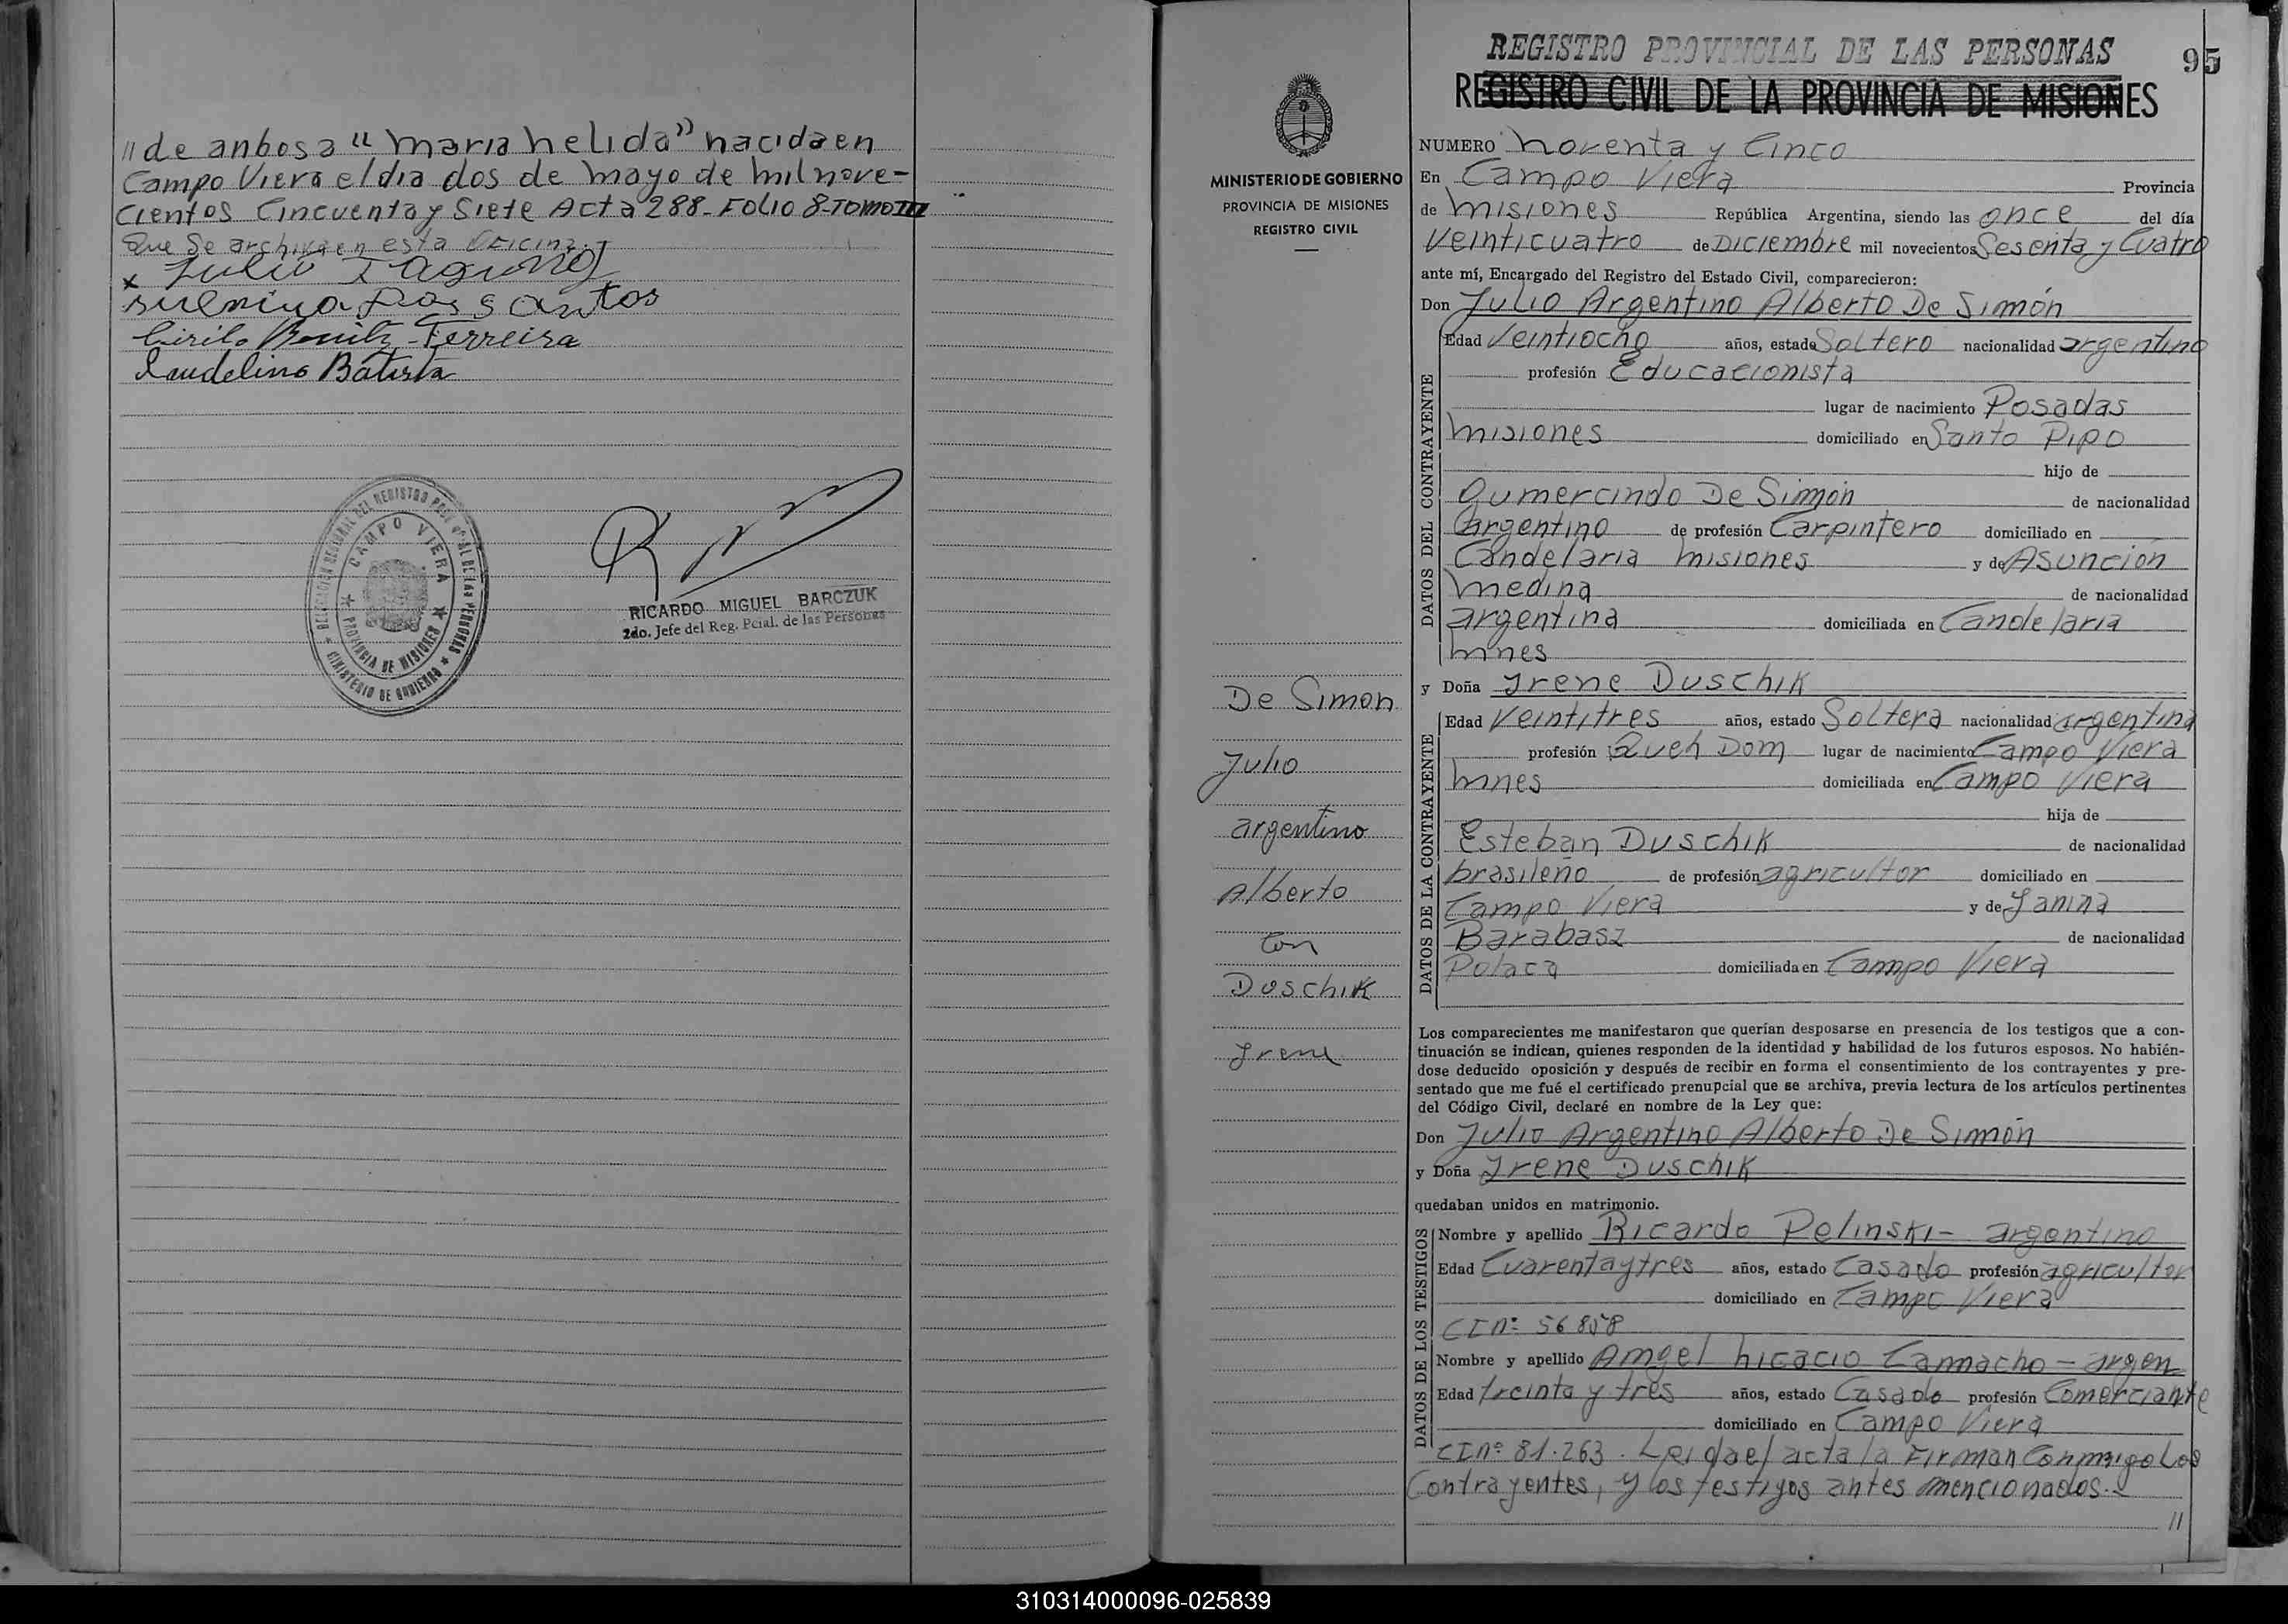 " de anbos a “maria nelida” nacida en
Campo Viera el dia dos de mayo de mil nove-
cientos Cincuenta y Siete Acta 288- FOLIO 8-TOMO III
Que Se archiva en esta Oficina.
x Julio
dos santos
Cirilo Benitz Ferreira
Laudelino Batista
CAMPO VIERA
PROVINCIA DE MISIONES
MINISTERIO DE GOBIERNO
RICARDO MIGUEL BARCZUK
2do. Jefe del Reg. Pcial. de las Personas
MINISTERIO DE GOBIERNO
PROVINCIA DE MISIONES
REGISTRO CIVIL
De Simon
Julio
argentino
Alberto
Con
Duschik
Irene
REGISTRO PROVINCIAL DE LAS PERSONAS
95
REGISTRO CIVIL DE LA PROVINCIA DE MISIONES
NUMERO noventa y Cinco
En Campo Viera Provincia
de misiones República Argentina, siendo las once del día
Veinticuatro de Diciembre mil novecientos Sesenta y Cuatro
ante mí, Encargado del Registro del Estado Civil, comparecieron:
Don Julio Argentino Alberto De Simón
DATOS DEL CONTRAYENTE
Edad Veintiocho años, estado Soltero nacionalidad argentino
profesión Educacionista
lugar de nacimiento Posadas
misiones domiciliado en Santo Pipo
hijo de
Gumercindo De Simón de nacionalidad
argentino de profesión Carpintero domiciliado en
Candelaria misiones y de Asunción
medina de nacionalidad
argentina domiciliada en Candelaria
mnes
y Doña Irene Duschik
DATOS DE LA CONTRAYENTE
Edad Veintitres años, estado Soltera nacionalidad argentina
profesión Queh Dom lugar de nacimiento Campo Viera
mnes domiciliada en Campo Viera
hija de
Esteban Duschik de nacionalidad
brasileño de profesión agricultor domiciliado en
Campo Viera y de Janina
Barabasz de nacionalidad
Polaca domiciliada en Campo Viera
Los comparecientes me manifestaron que querían desposarse en presencia de los testigos que a con-
tinuación se indican, quienes responden de la identidad y habilidad de los futuros esposos. No habién-
dose deducido oposición y después de recibir en forma el consentimiento de los contrayentes y pre-
sentado que me fué el certificado prenupcial que se archiva, previa lectura de los artículos pertinentes
del Código Civil, declaré en nombre de la Ley que:
Don Julio Argentino Alberto De Simón
y Doña Irene Duschik
quedaban unidos en matrimonio.
DATOS DE LOS TESTIGOS
Nombre y apellido Ricardo Pelinski- argentino
Edad Cuarentaytres años, estado Casado profesión agricultor
domiciliado en Campo Viera
CI nº 56858
Nombre y apellido Angel nicacio Camacho - argen
Edad treinta y tres años, estado Casado profesión Comerciante
domiciliado en Campo Viera
CI nº 81.263. Leida el acta la Firman Conmigo Los
Contrayentes, y los testigos antes mencionados.-
"
310314000096-025839